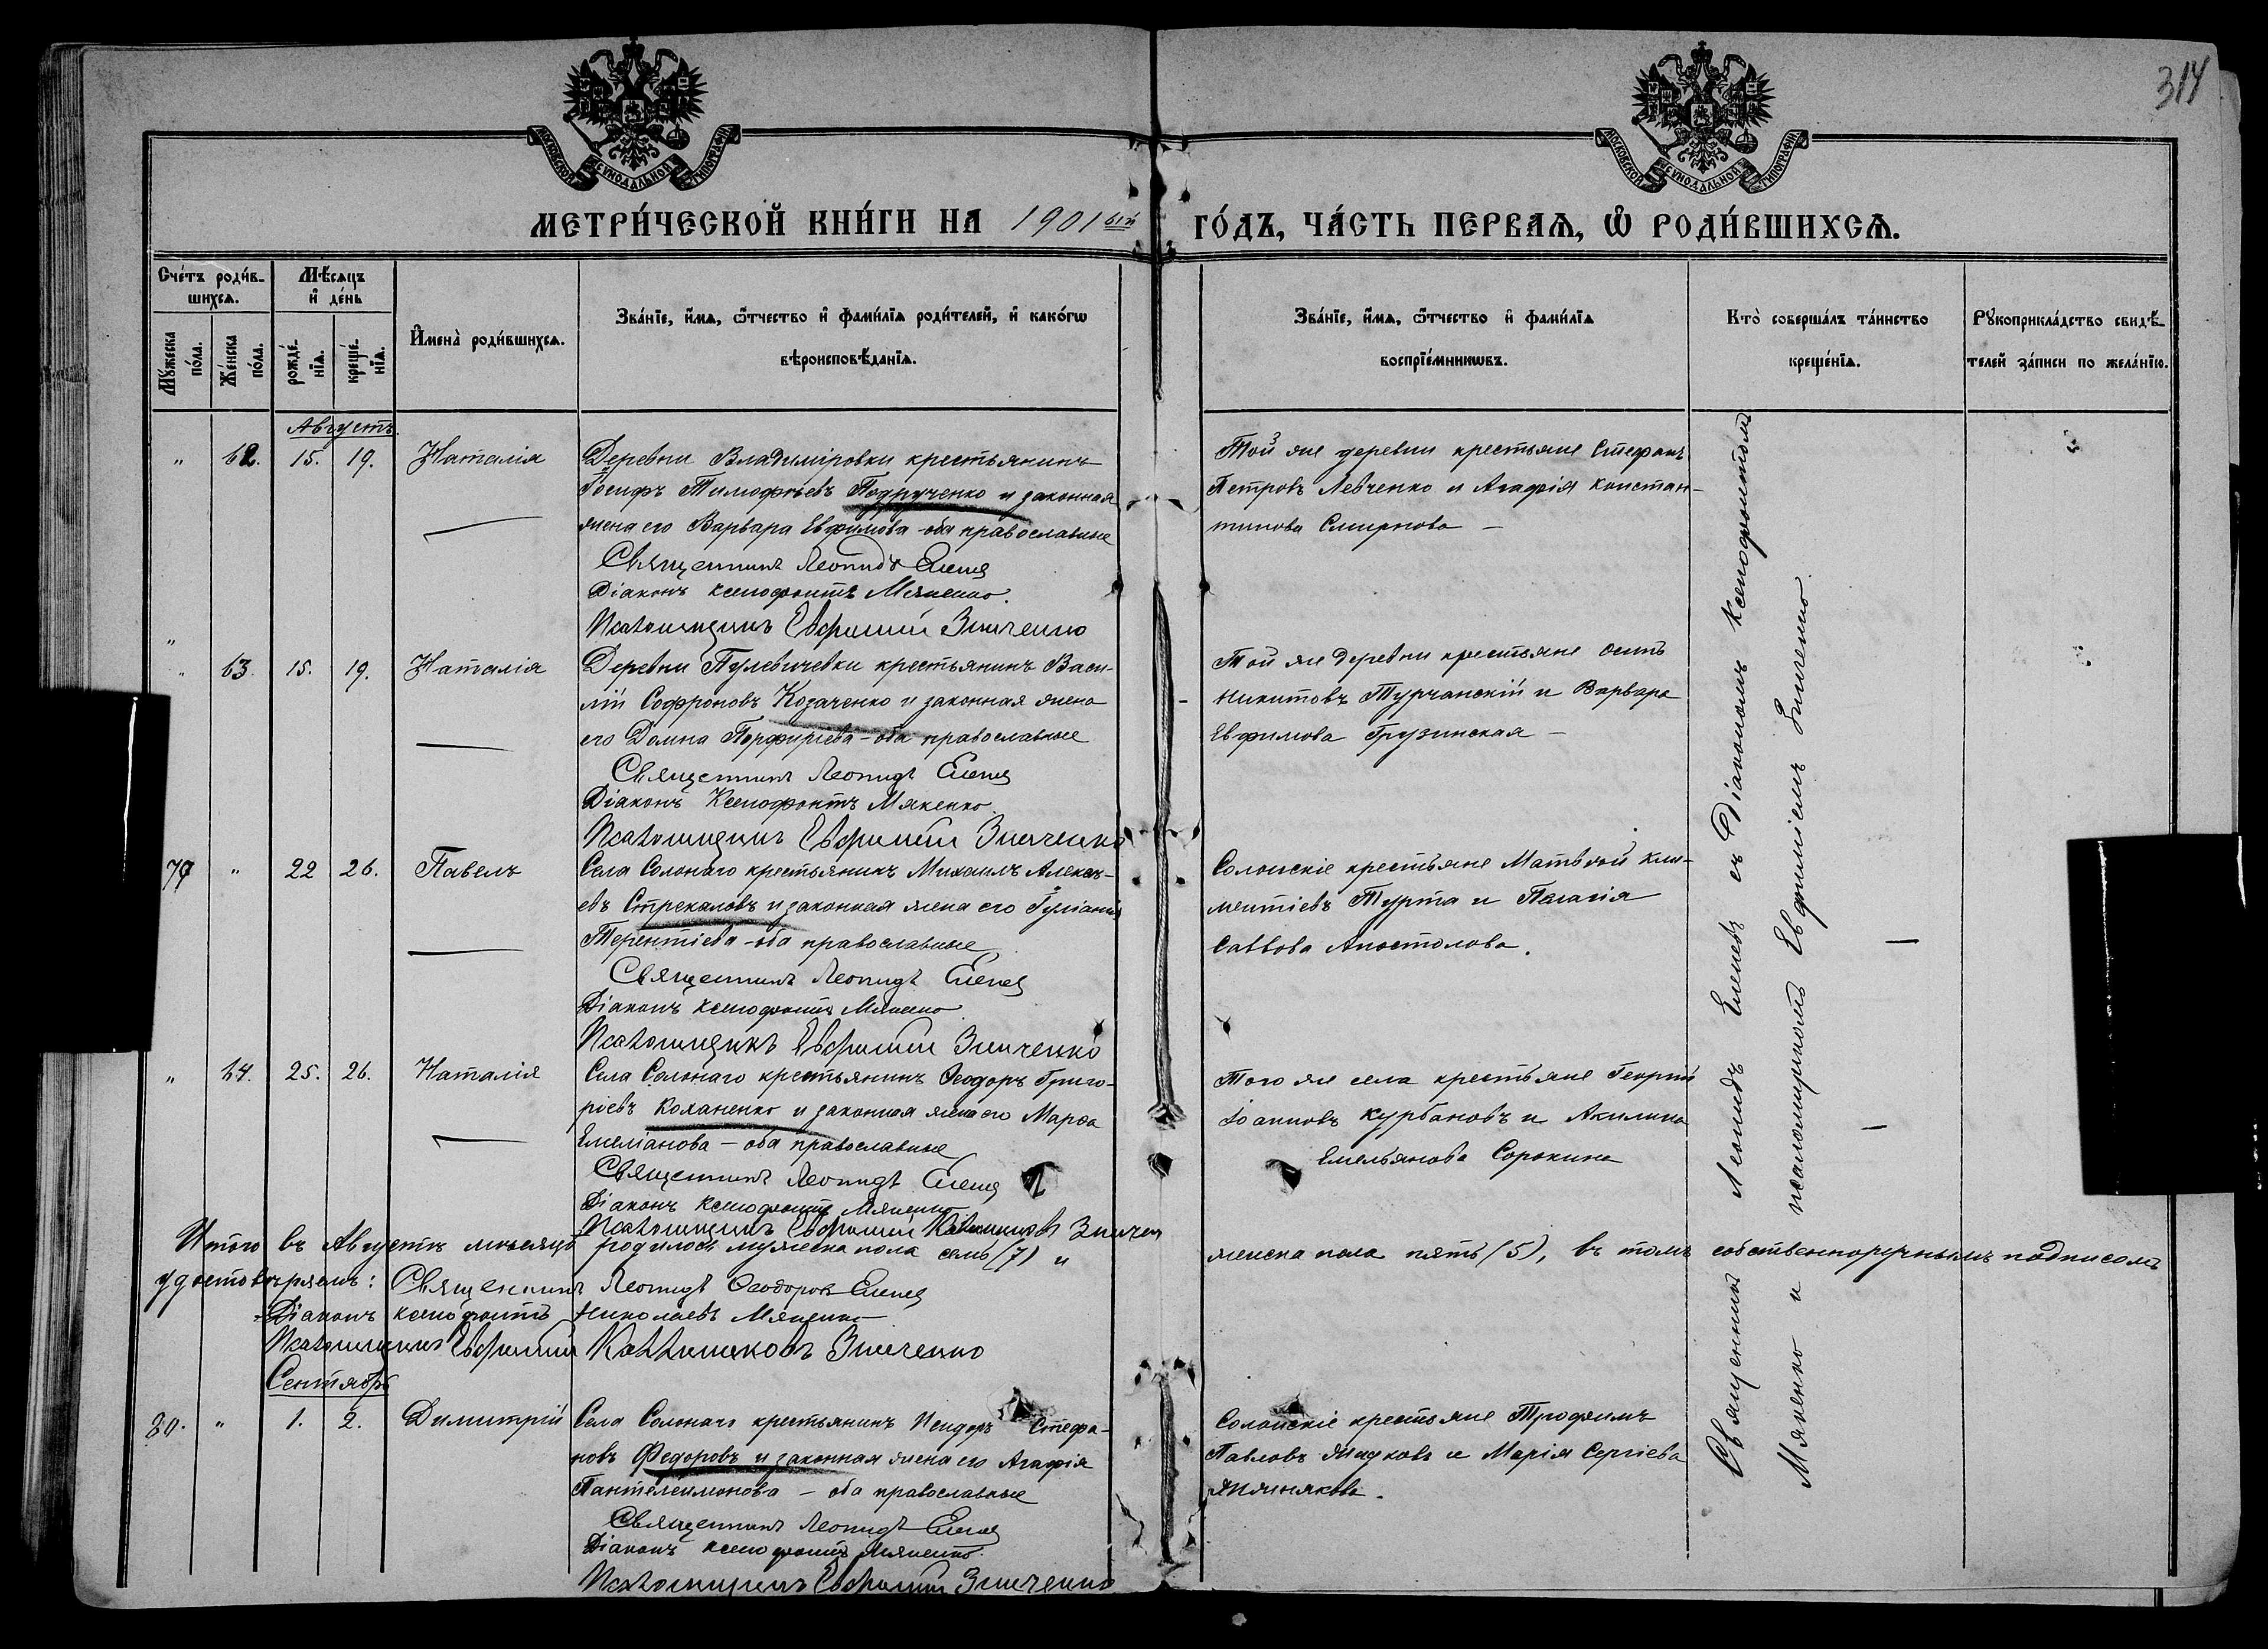 314
МОСКОВСКОЙ СѴНОДАЛЬНОЙ ТИПОГРАФІИ
МОСКОВСКОЙ СѴНОДАЛЬНОЙ ТИПОГРАФІИ
МЕТРИ́ЧЕСКОЙ КНИ́ГИ НА 1901ый ГО́ДЪ, ЧА́СТЬ ПЕРВАѦ, Ѡ РОДИ́ВШИХСѦ.
Сче́тъ роди́в-
шихсѧ.
Мѣ́сѧцъ
и҆ де́нь
Мꙋжеска
по́ла.
Же́нска
по́ла.
рожде́-
нїѧ.
креще́-
нїѧ.
И҆мена̀ роди́вшихсѧ.
Зва́нїе, и҆́мѧ, ѻ҆́тчество и҆ фами́лїѧ роди́телей, и҆ како́гѡ
вѣроисповѣ́данїѧ.
Зва́нїе, и҆́мѧ, ѻ҆́тчество и҆ фами́лїѧ
воспрїе́мникѡвъ.
Кто̀ соверша́лъ та́инство
креще́нїѧ.
Рꙋкоприкла́дство свидѣ́-
телей за́писи по жела́нїю.
Августъ.
" 62. 15. 19. Наталія
Деревни Владиміровки крестьянинъ
Іосифъ Тимофѣевъ Подрученко и законная
жена его Варвара Евфимова - оба православные
Священникъ Леонидъ Еленев
Діаконъ Ксенофонтъ Мякенко.
Псаломщикъ Евфимій Зинченко
Той же деревни крестьяне Стефанъ
Петровъ Левченко и Агафія Констан-
тинова Смирнова —
" 63. 15. 19. Наталія
Деревни Пулевичевки крестьянинъ Васи-
лій Софроновъ Козаченко и законная жена
его Домна Порфиріева - оба православные
Священникъ Леонидъ Еленев
Діаконъ Ксенофонтъ Мякенко.
Псаломщикъ Евфимій Зинченко
Той же деревни крестьяне
Никитовъ Турчанскій и Варвара
Евфимова Грузинская —
79 " 22 26. Павелъ
Села Солонаго крестьянинъ Михаилъ Алексѣ-
евъ Стрекаловъ и законная жена его Іуліанія
Терентіева - оба православные
Священникъ Леонидъ Еленев
Діаконъ Ксенофонтъ Мякенко
Псаломщикъ Евфимій Зинченко
Солонскіе крестьяне Матвѣй Кли-
ментіевъ Турта и Пелагія
Саввова Апостолова.
" 64. 25. 26. Наталія
Села Солонаго крестьянинъ Ѳеодоръ Григо-
ріевъ Коханенко и законная жена его Марѳа
Емеліанова — оба православные
Священникъ Леонидъ Еленев
Діаконъ Ксенофонтъ Мякенко
Псаломщикъ Евфимій Каллиниковъ Зинчен
Того же села крестьяне Георгій
Іоанновъ Курбановъ и Акилина
Емельянова Сорокина
Итого въ Августѣ мѣсяцѣ родилось мужеска пола семь (7) и женска пола пять (5), въ томъ собственноручнымъ подписомъ
удостовѣряемъ: Священникъ Леонидъ Ѳеодоровъ Еленев
Діаконъ Ксенофонтъ Николаевъ Мякенко
Псаломщикъ Евфимій Каллиниковъ Зинченко
Сентябрь
80. " 1. 2. Димитрій
Села Солонаго крестьянинъ Исидоръ Стефа-
новъ Федоровъ и законная жена его Агафія
Пантелеимонова — оба православные
Священникъ Леонидъ Еленев
Діаконъ Ксенофонтъ Мякенко.
Псаломщикъ Евфимій Зинченко
Солонскіе крестьяне Трофимъ
Павловъ и Марія Сергіева
Священникъ Леонидъ Еленевъ съ Діакономъ Ксенофонтомъ
Мякенко и псаломщикомъ Евфиміемъ Зинченко.